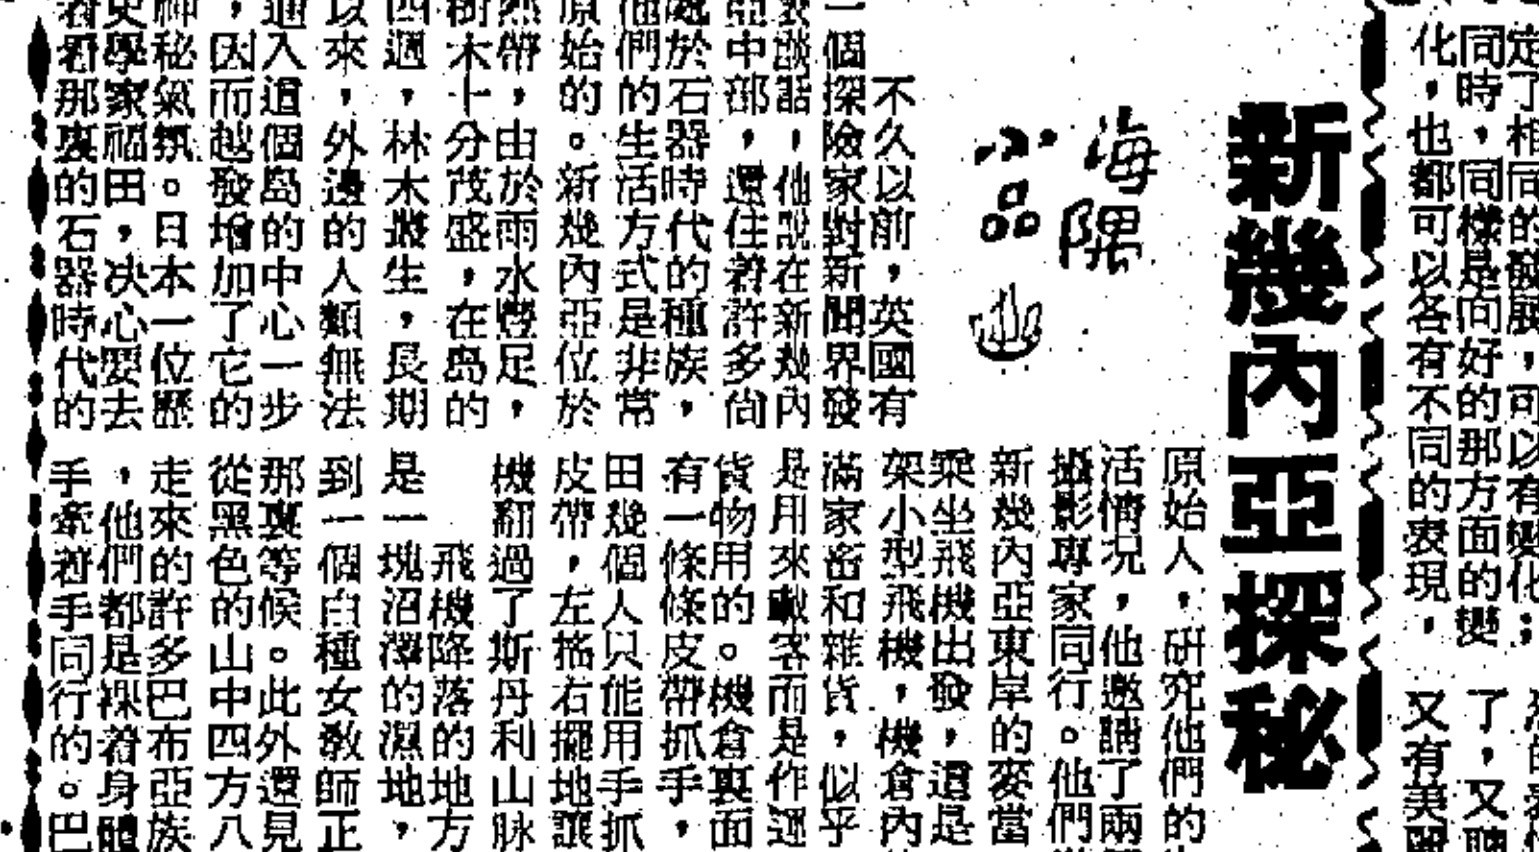 定了相同的發展，可以有變化；
同時，同樣是向好的那方面的變
化，也都可以各有不同的表現，
了，又聰
又有美麗
新幾內亞探秘
海隅
小品
不久以前，英國有
一個探險家對新聞界發
表談話，他說在新幾內
亞中部，還住着許多尚
處於石器時代的種族，
他們的生活方式是非常
原始的。新幾內亞位於
熱帶，由於雨水豐足，
樹木十分茂盛，在島的
四週，林木叢生，長期
以來，外邊的人類無法
通入這個島的中心一步
，因而越發增加了它的
神秘氣氛。日本一位歷
史學家福田，決心要去
看看那裏的石器時代的
原始人，研究他們的
活情況，他邀請了兩
攝影專家同行。他們
新幾內亞東岸的麥當
乘坐飛機出發，這是
架小型飛機，機倉內
滿家畜和雜貨，似乎
是用來載客而是作運
貨物用的。機倉裏面
有一條條皮帶抓手，
田幾個人只能用手抓
皮帶，左搖右擺地讓
機翻過了斯丹利山脉
飛機降落的地方
是一塊沼澤的濕地，
到一個白種女教師正
那裏等候。此外還見
從黑色的山中四方八
走來的許多巴布亞族
，他們都是裸着身體
手牽着手同行的。巴